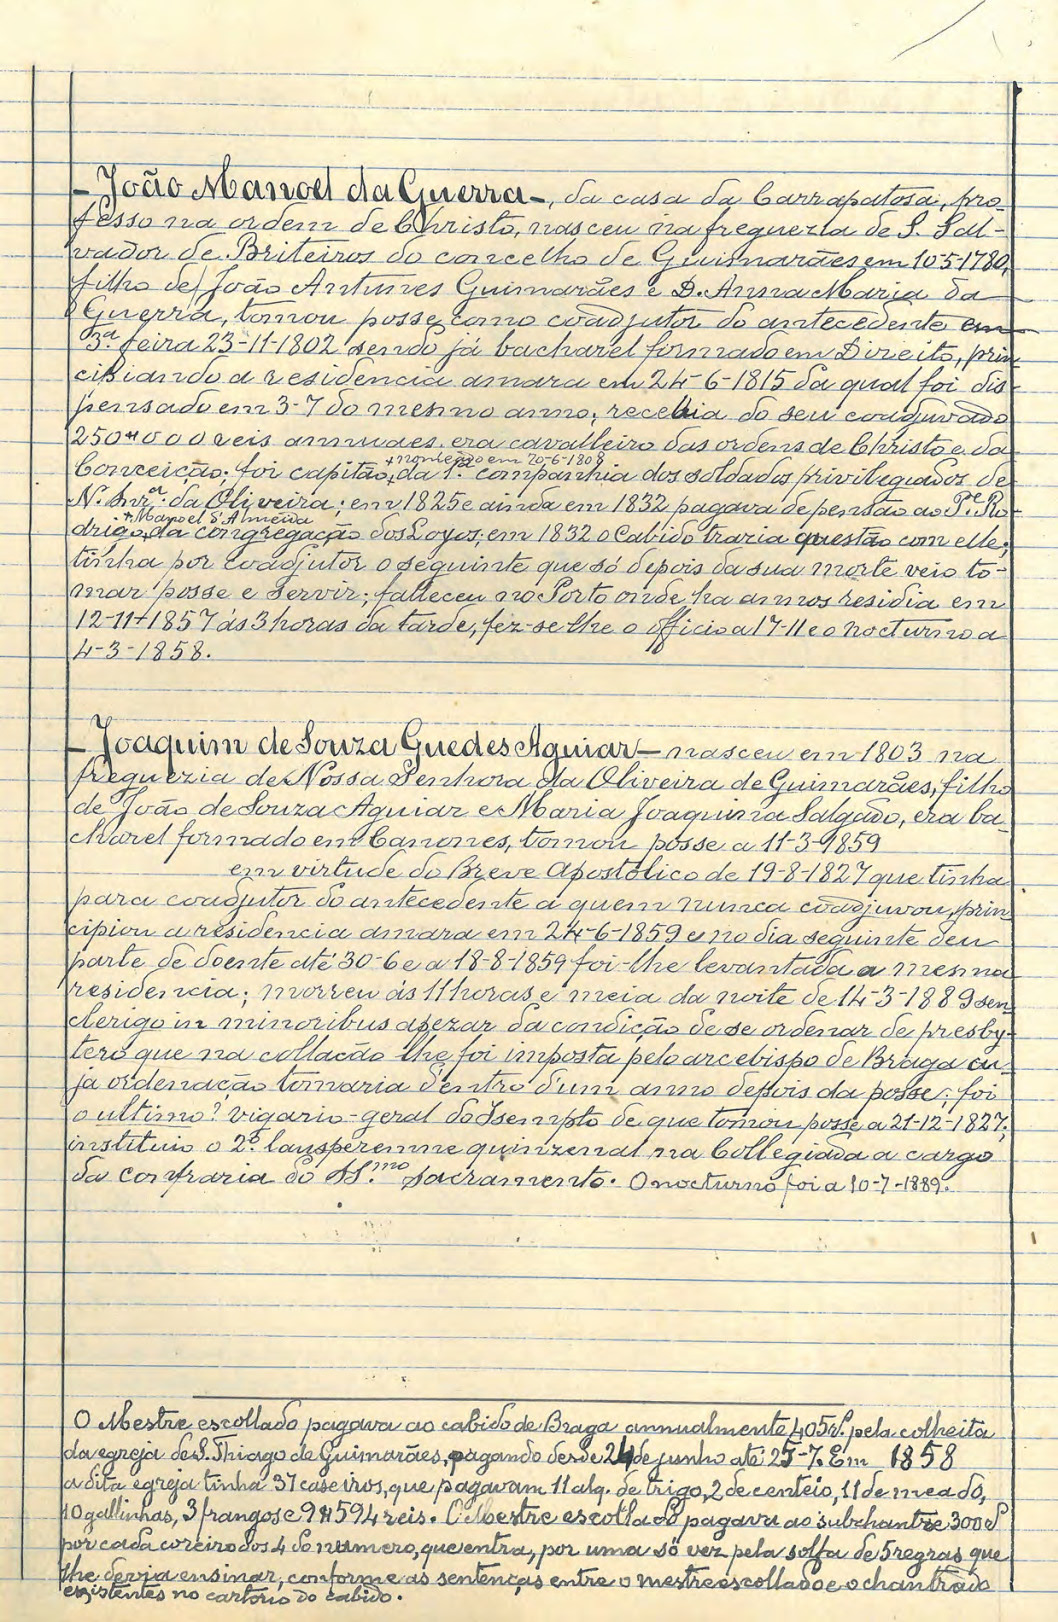 - João Manoel da Guerra -, da casa da Carrapatosa, pro-
fesso na ordem de Christo, nasceu na freguezia de S. Sal-
vador de Briteiros do concelho de Guimarães em 10-5-1780,
filho de João Antunes Guimarães e D. Anna Maria da
Guerra, tomou posse como coadjutor do antecedente em
3.ª feira 23-11-1802 sendo já bacharel formado em Direito, prin
cipiando a residencia amara em 24-6-1815 da qual foi dis
pensado em 3-7 do mesmo anno; recebia do seu coadjuvado
250#000 reis annuaes. era cavalleiro das ordens de Christo e da
+ nomeado em 20-6-1808
Conceição; foi capitão, da 1.ª companhia dos soldados privilegiados de
N. Snrª. da Oliveira; em 1825 e ainda em 1832 pagava de pensão ao Pe. Ro-
+ Manoel d'Almeida
drigo, da congregação dos Loyos; em 1832 o Cabido trazia questão com elle;
tinha por coadjutor o seguinte que só depois da sua morte veio to-
mar posse e servir; falleceu no Porto onde ha annos residia em
12-11-1857 ás 3 horas da tarde, fez-se-lhe o officio a 17-11 e o nocturno a
4-3-1858.
- Joaquim de Souza Guedes Aguiar - nasceu em 1803 na
freguezia de Nossa Senhora da Oliveira de Guimarães, filho
de João de Souza Aguiar e Maria Joaquina Salgado, era ba-
charel formado em Canones, tomou posse a 11-3-1859
em virtude do Breve Apostolico de 19-8-1827 que tinha
para coadjutor do antecedente a quem nunca coadjuvou, prin
cipiou a residencia amara em 24-6-1859 e no dia seguinte deu
parte de doente até 30-6 e a 18-8-1859 foi-lhe levantada a mesma
residencia; morreu ás 11 horas e meia da noite de 14-3-1889 sen
clerigo in minoribus apezar da condição de se ordenar de presby-
tero que na collação lhe foi imposta pelo arcebispo de Braga cu
ja ordenação tomaria dentro d'um anno depois da posse; foi
o ultimo? vigario-geral do Isempto de que tomou posse a 21-12-1827;
instituio o 2.º lausperenne quinzenal na Collegiada a cargo
da confraria do SS.mo Sacramento. O nocturno foi a 10-7-1889.
O Mestre escollado pagava ao cabido de Braga annualmente 405 rs. pela colheita
da egreja de S. Thiago de Guimarães, pagando desde 24 de junho até 25-7. Em 1858
a dita egreja tinha 37 caseiros, que pagavam 11 alq. de trigo, 2 de centeio, 11 de meado,
10 gallinhas, 3 frangos e 9#594 reis. O Mestre escollado pagava ao subchantre 300 rs
por cada coreiro dos 4 do numero, que entra, por uma só vez pela solfa de 5 regras que
lhe devia ensinar, conforme as sentenças entre o mestre escollado e o chantrado
existentes no cartorio do cabido.